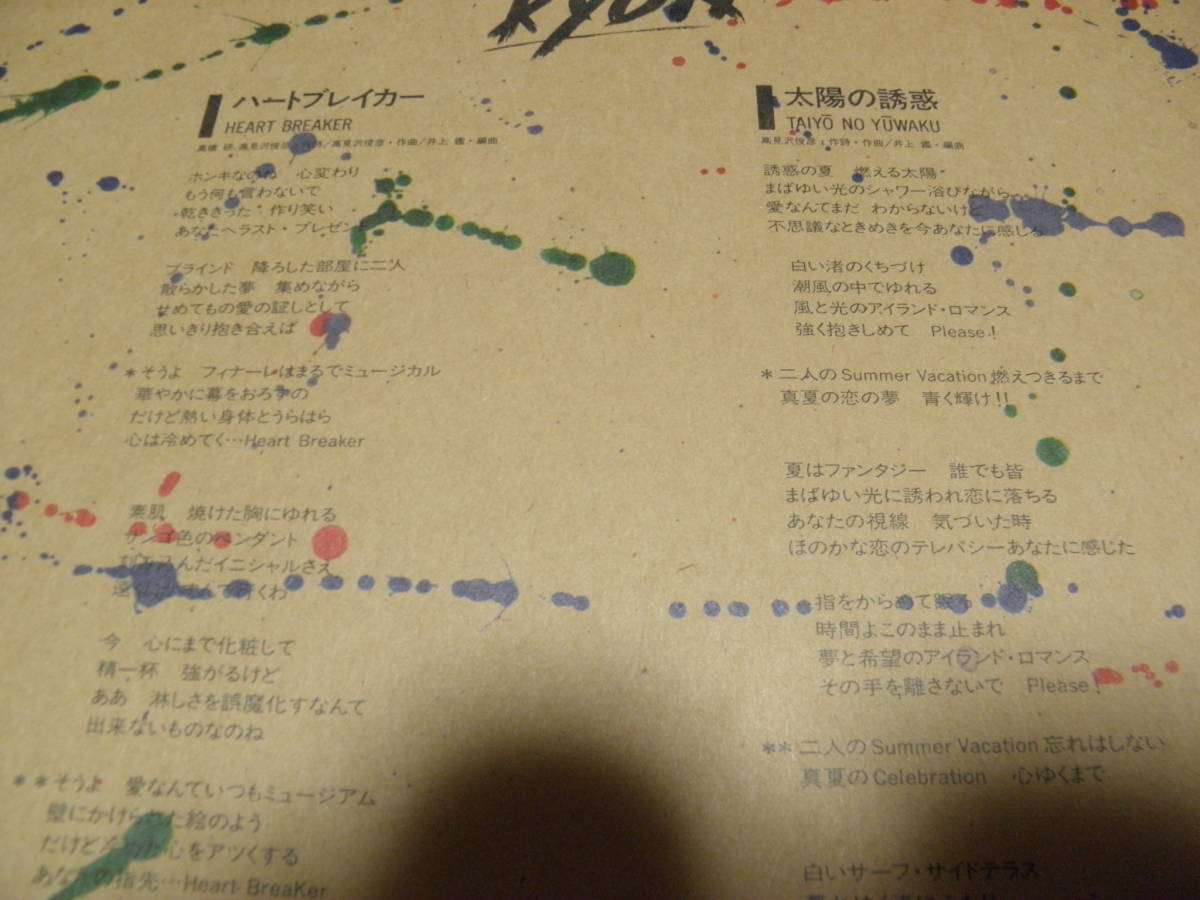 KYON
ハートブレイカー
HEART BREAKER
高橋 研、高見沢俊彦・作詩/高見沢俊彦・作曲/井上 鑑・編曲
ホンキなのね 心変わり
もう何も言わないで
乾ききった 作り笑い
あなたへラスト・プレゼント
ブラインド 降ろした部屋に二人
散らかした夢 集めながら
せめてもの愛の証しとして
思いきり抱き合えば
*そうよ フィナーレはまるでミュージカル
華やかに幕をおろすの
だけど熱い身体とうらはら
心は冷めてく…Heart Breaker
素肌 焼けた胸にゆれる
サンゴ色のペンダント
んだイニシャルさえ
くわ
今 心にまで化粧して
精一杯 強がるけど
ああ 淋しさを誤魔化すなんて
出来ないものなのね
**そうよ 愛なんていつもミュージアム
壁にかけられた絵のよう
だけど 心をアツくする
あなたの指先…Heart Breaker
太陽の誘惑
TAIYŌ NO YŪWAKU
高見沢俊彦・作詩・作曲/井上 鑑・編曲
誘惑の夏 燃える太陽
まばゆい光のシャワー浴びながら
愛なんてまだ わからないけど
不思議なときめきを今あなたに感じる
白い渚のくちづけ
潮風の中でゆれる
風と光のアイランド・ロマンス
強く抱きしめて Please!
*二人のSummer Vacation燃えつきるまで
真夏の恋の夢 青く輝け!!
夏はファンタジー 誰でも皆
まばゆい光に誘われ恋に落ちる
あなたの視線 気づいた時
ほのかな恋のテレパシーあなたに感じた
指をからめて眠る
時間よこのまま止まれ
夢と希望のアイランド・ロマンス
その手を離さないで Please!
**二人のSummer Vacation忘れはしない
真夏のCelebration 心ゆくまで
白いサーフ・サイドテラス